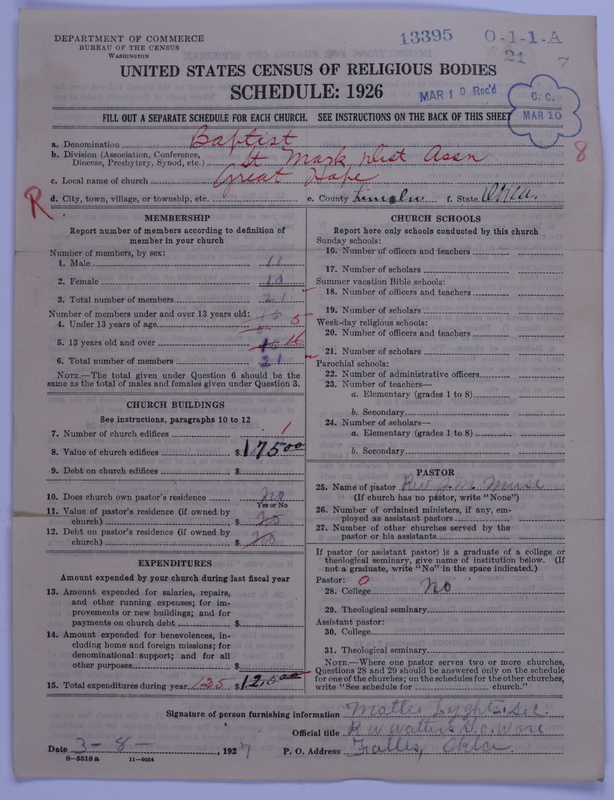 DEPARTMENT OF COMMERCE
BUREAU OF THE CENSUS
WASHINGTON
13395 O-1-1-A
21 7
UNITED STATES CENSUS OF RELIGIOUS BODIES
SCHEDULE: 1926
MAR 10 Rec'd
C. C.
MAR 10
FILL OUT A SEPARATE SCHEDULE FOR EACH CHURCH. SEE INSTRUCTIONS ON THE BACK OF THIS SHEET
a. Denomination Baptist
b. Division (Association, Conference, Diocese, Presbytery, Synod, etc.) St Mark Dist Assn
8
c. Local name of church Great Hope
R
d. City, town, village, or township, etc. e. County Lincoln f. State Okla.
MEMBERSHIP
Report number of members according to definition of
member in your church
Number of members, by sex:
1. Male 11
2. Female 10
3. Total number of members 21
Number of members under and over 13 years old:
4. Under 13 years of age 5
5. 13 years old and over 16
6. Total number of members 21
NOTE.—The total given under Question 6 should be
same as the total of males and females given under Question 3.
CHURCH BUILDINGS
See instructions, paragraphs 10 to 12
7. Number of church edifices 1
8. Value of church edifices $ 175 00
9. Debt on church edifices $
10. Does church own pastor's residence no
Yes or No
11. Value of pastor's residence (if owned by
church) $
12. Debt on pastor's residence (if owned by
church) $
EXPENDITURES
Amount expended by your church during last fiscal year
13. Amount expended for salaries, repairs,
and other running expenses; for im-
provements or new buildings; and for
payments on church debt $
14. Amount expended for benevolences, in-
cluding home and foreign missions; for
denominational support; and for all
other purposes $
15. Total expenditures during year 125 $ 125 00
CHURCH SCHOOLS
Report here only schools conducted by this church
Sunday schools:
16. Number of officers and teachers
17. Number of scholars
Summer vacation Bible schools:
18. Number of officers and teachers
19. Number of scholars
Week-day religious schools:
20. Number of officers and teachers
21. Number of scholars
Parochial schools:
22. Number of administrative officers
23. Number of teachers—
a. Elementary (grades 1 to 8)
b. Secondary
24. Number of scholars—
a. Elementary (grades 1 to 8)
b. Secondary
PASTOR
25. Name of pastor Rev
(If church has no pastor, write "None")
26. Number of ordained ministers, if any, em-
ployed as assistant pastors
27. Number of other churches served by the
pastor or his assistants
If pastor (or assistant pastor) is a graduate of a college or
theological seminary, give name of institution below. (If
not a graduate, write "No" in the space indicated.)
Pastor: O
28. College No
29. Theological seminary
Assistant pastor:
30. College
31. Theological seminary
NOTE.—Where one pastor serves two or more churches,
Questions 28 and 29 should be answered only on the schedule
for one of the churches; on the schedules for the other churches,
write "See schedule for church."
Signature of person furnishing information Mattie
Official title
Date 3-8- , 1927 P. O. Address Fallis, Okla
8—5518a 11—9664